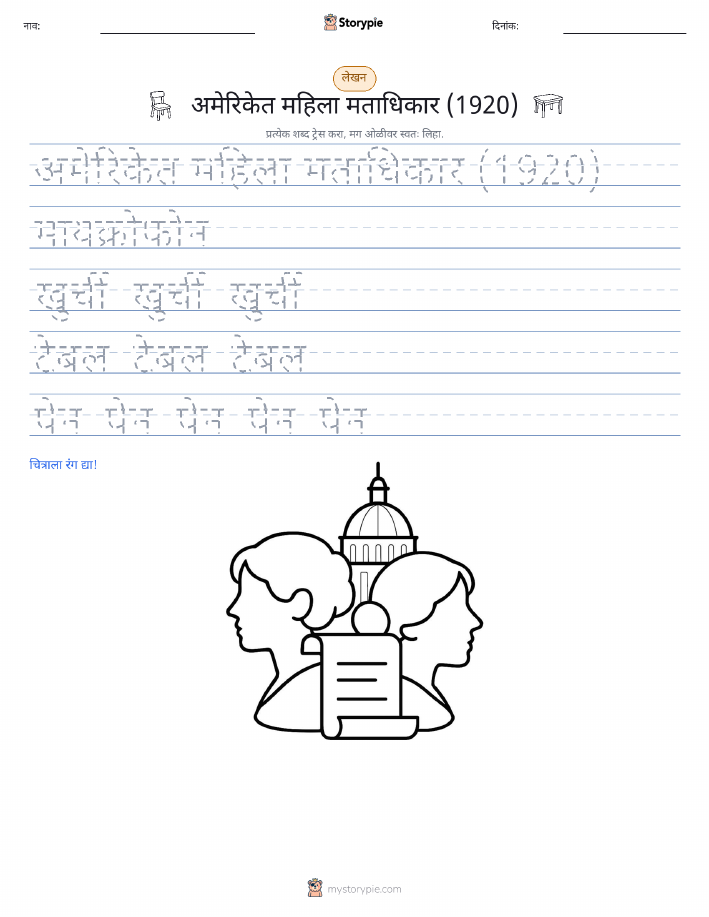 नाव:
Storypie
दिनांक:
लेखन
अमेरिकेत महिला मताधिकार (1920)
प्रत्येक शब्द ट्रेस करा, मग ओळीवर स्वतः लिहा.
अमेरिकेत महिला मताधिकार (1920)
मायक्रोफोन
खुर्ची खुर्ची खुर्ची
टेबल टेबल टेबल
पेन पेन पेन पेन पेन
चित्राला रंग द्या!
mystorypie.com